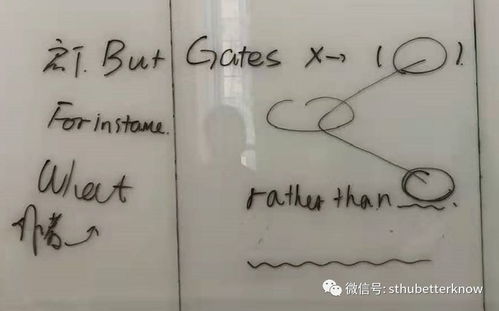 宏T. But Gates X→ ( ).
For instame.
What
rather than ___.
微信号: sthubetterknow